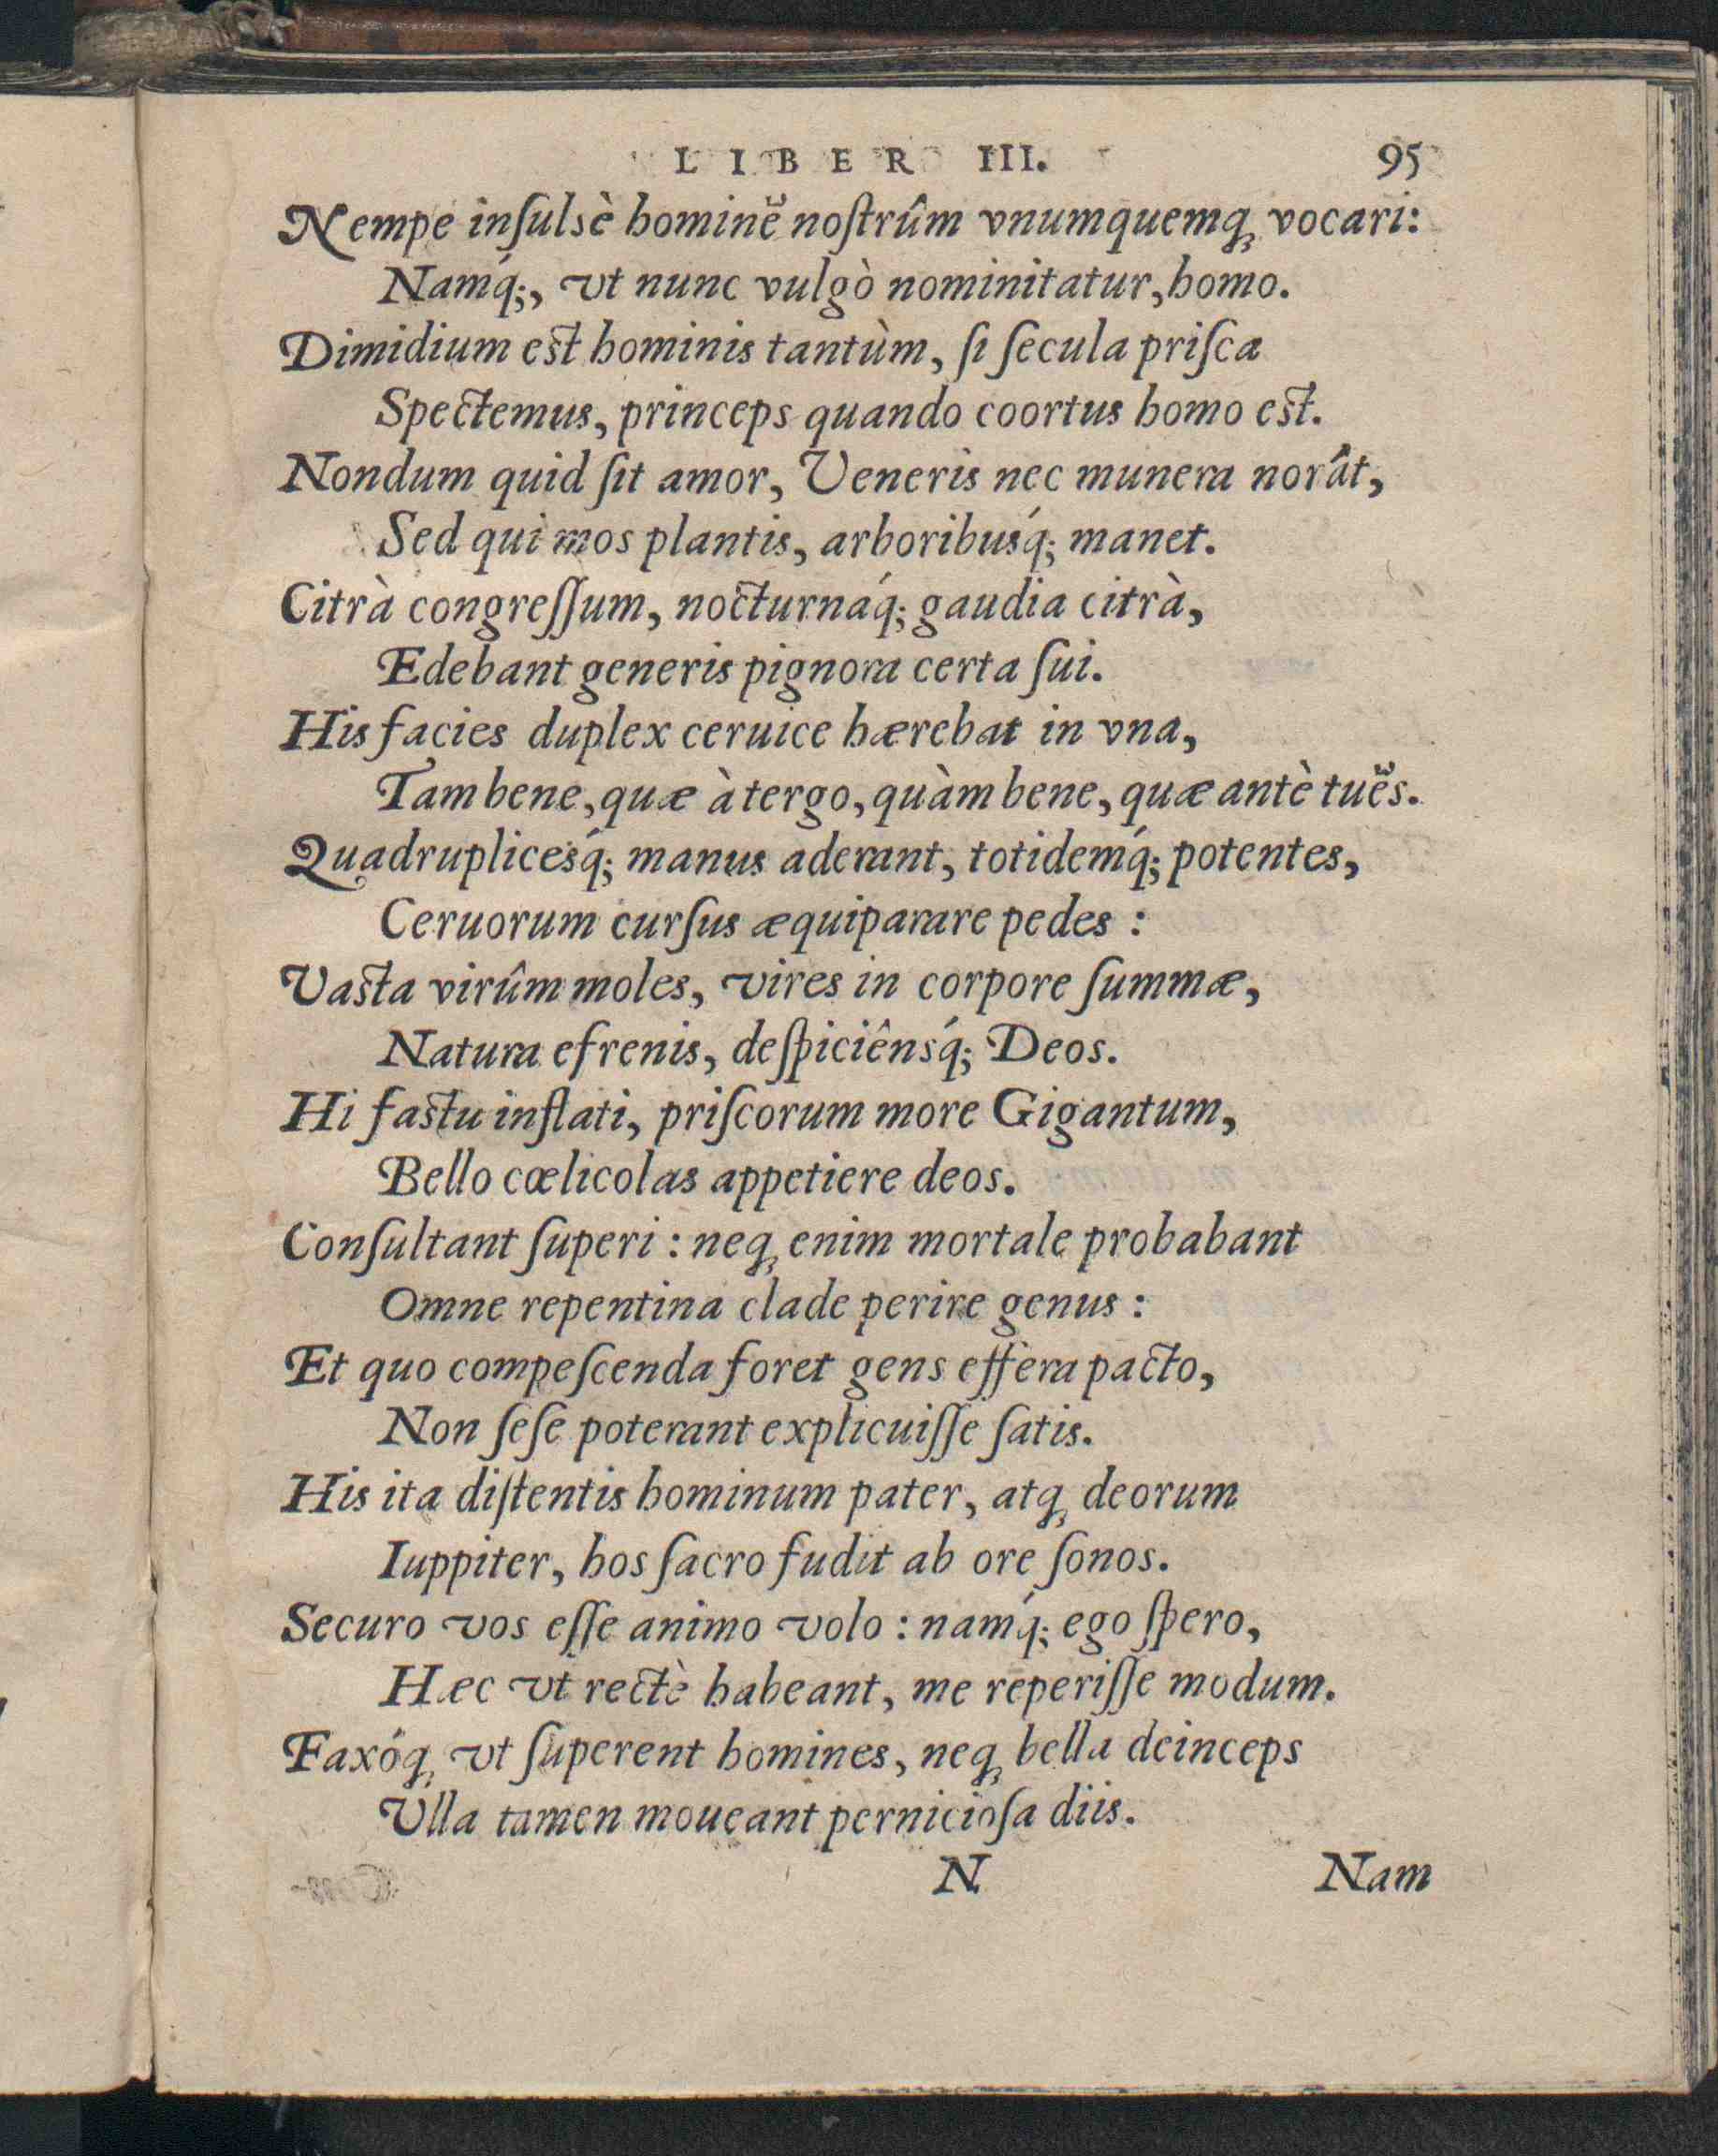 LIBER III. 95
Nempe inſulsè hominẽ noſtrûm vnumquemq́ꝫ vocari:
Namq́;, vt nunc vulgò nominitatur, homo.
Dimidium eſt hominis tantùm, ſi ſecula priſca
Spectemus, princeps quando coortus homo eſt.
Nondum quid ſit amor, Veneris nec munera norât,
Sed qui mos plantis, arboribusq́; manet.
Citrà congreſſum, nocturnáq́; gaudia citrà,
Edebant generis pignora certa ſui.
His facies duplex ceruice hærebat in vna,
Tam bene, quæ à tergo, quàm bene, quæ antè tuẽs.
Quadruplicesq́; manus aderant, totidemq́; potentes,
Ceruorum curſus æquiparare pedes :
Vaſta virûm moles, vires in corpore ſummæ,
Natura efrenis, deſpiciênsq́; Deos.
Hi faſtu inflati, priſcorum more Gigantum,
Bello cœlicolas appetiere deos.
Conſultant ſuperi : neqꝫ enim mortale probabant
Omne repentina clade perire genus :
Et quo compeſcenda foret gens effera pacto,
Non ſeſe poterant explicuiſſe ſatis.
His ita diſtentis hominum pater, atqꝫ deorum
Iuppiter, hos ſacro fudit ab ore ſonos.
Securo vos eſſe animo volo : namq́; ego ſpero,
Hæc vt rectè habeant, me reperiſſe modum.
Faxóqꝫ vt ſuperent homines, neqꝫ bella deinceps
Vlla tamen moueant pernicioſa diis.
N Nam